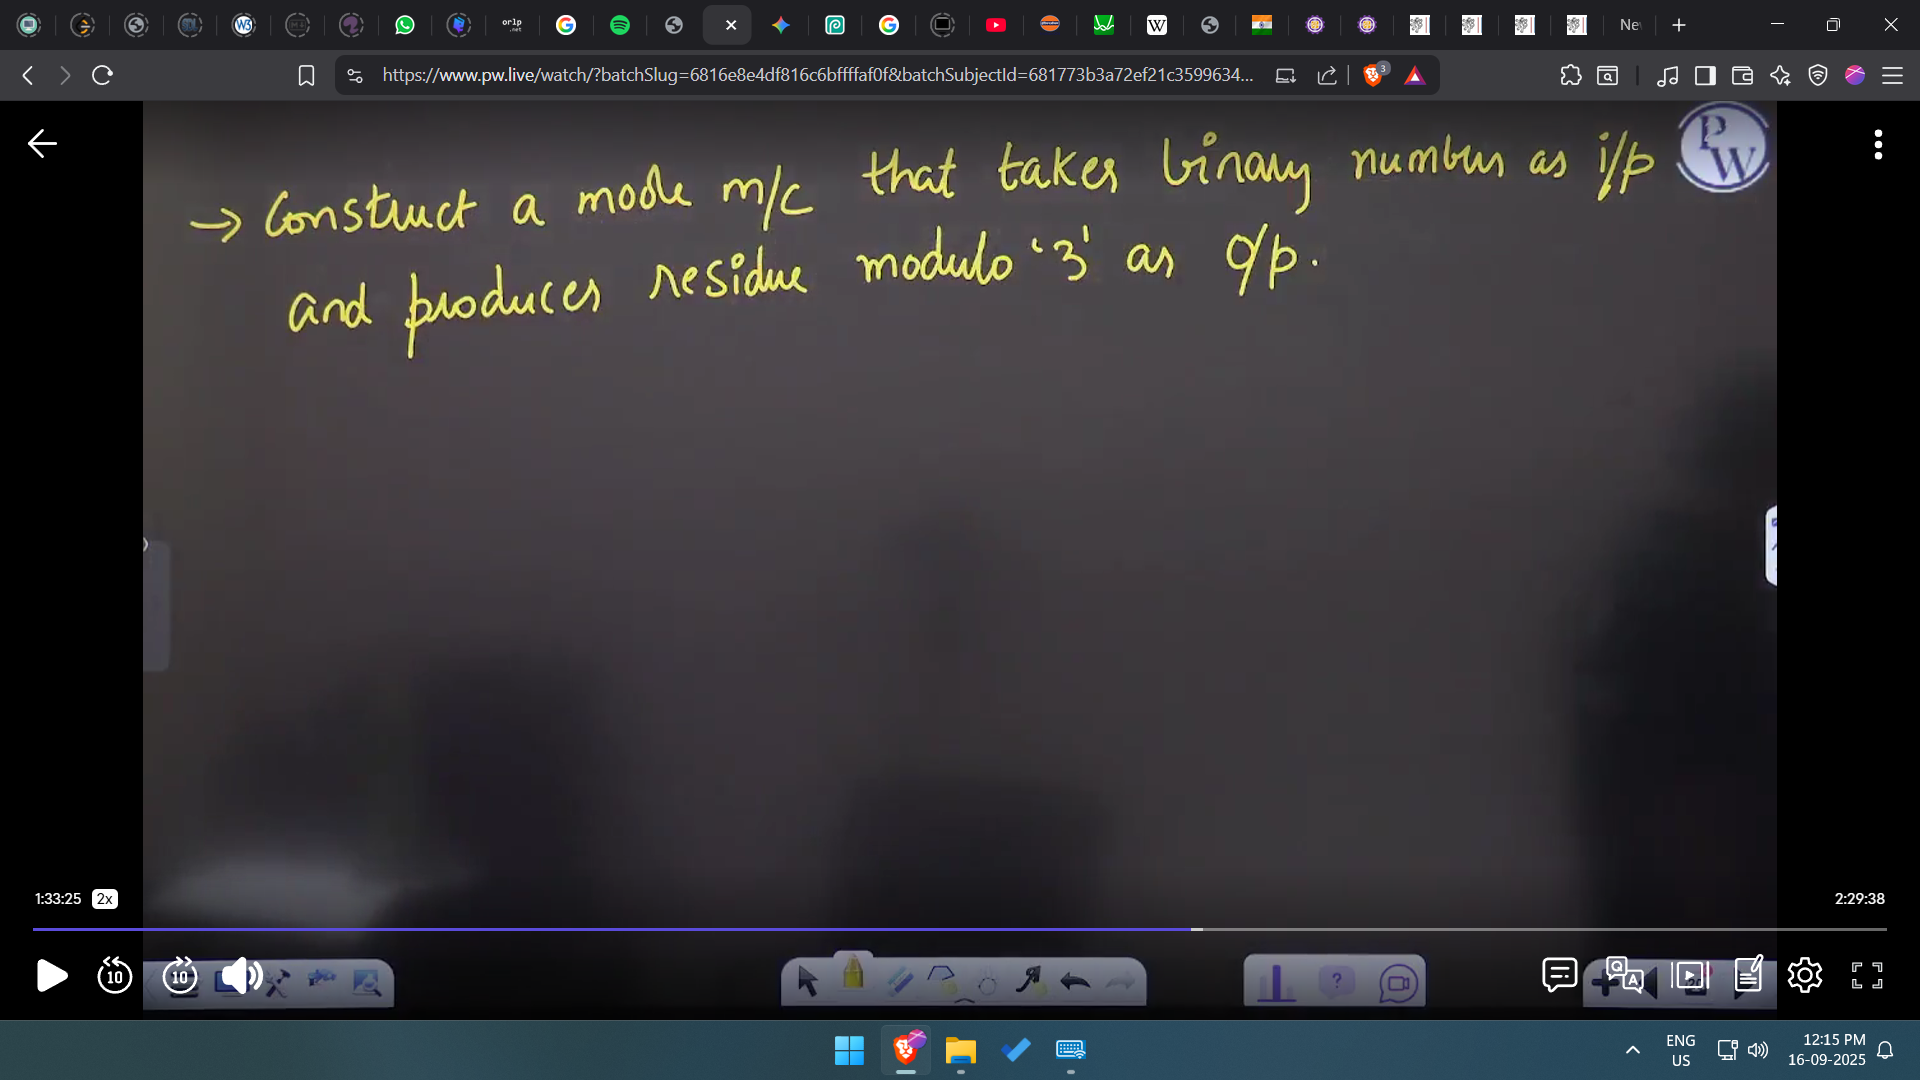 W3
orlp
.net
W
Ne
https://www.pw.live/watch/?batchSlug=6816e8e4df816c6bffffaf0f&batchSubjectId=681773b3a72ef21c3599634...
3
PW
→ Construct a moole m/c that takes binary number as i/p
and produces residue modulo '3' as o/p.
1:33:25 2x
2:29:38
10
10
Q A
ENG
US
12:15 PM
16-09-2025